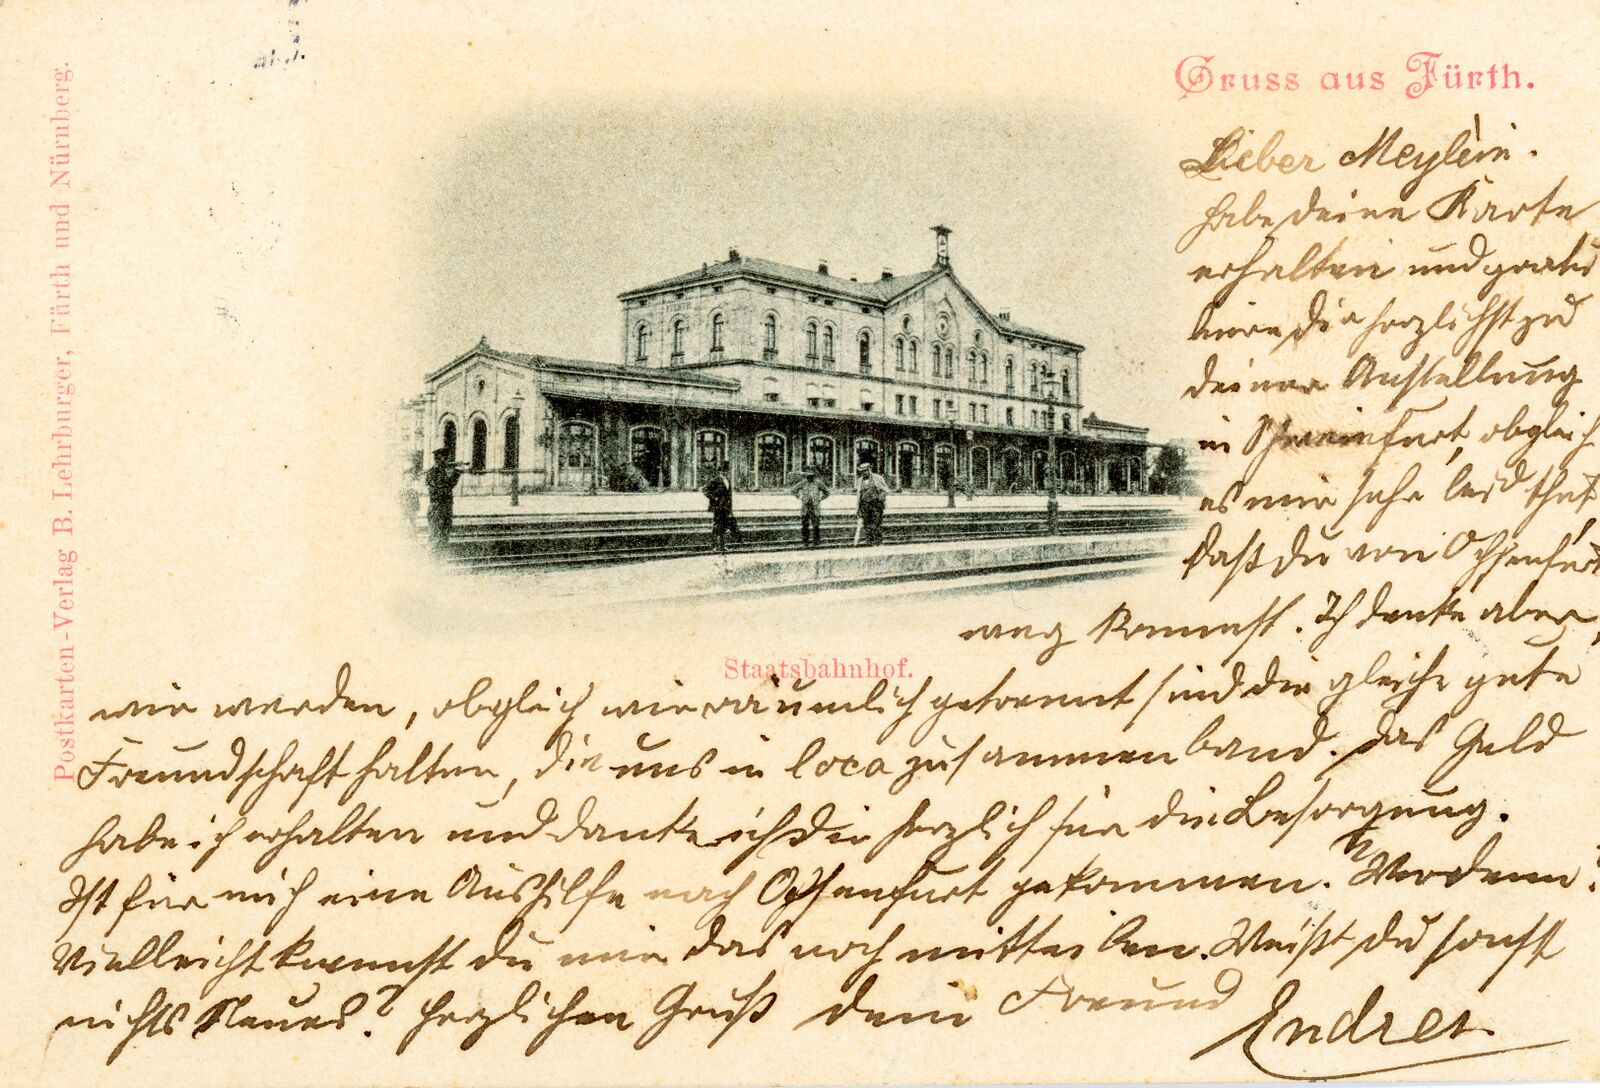 Gruss aus Fürth.
Postkarten-Verlag B. Lehrburger, Fürth und Nürnberg.
Lieber Meylein.
habe deine Karte
erhalten und gratu
liere dir herzlichst zu
deiner Anstellung
in Schweinfurt, obgleich
es mir sehr leid thut
daß du von Ochsenfurt
weg kommst. Ich denke aber,
Staatsbahnhof.
wir werden, obgleich wir räumlich getrennt sind die gleiche gute
Freundschaft halten, die uns in loco zusammen band. Das Geld
habe ich erhalten und danke ich dir herzlich für die Besorgung.
Ist für mich eine Aushilfe nach Ochsenfurt gekommen? Wer denn?
Vielleicht kannst du mir das noch mitteilen. Weißt du sonst
nichts Neues? Herzlichen Gruß dein Freund
Endres